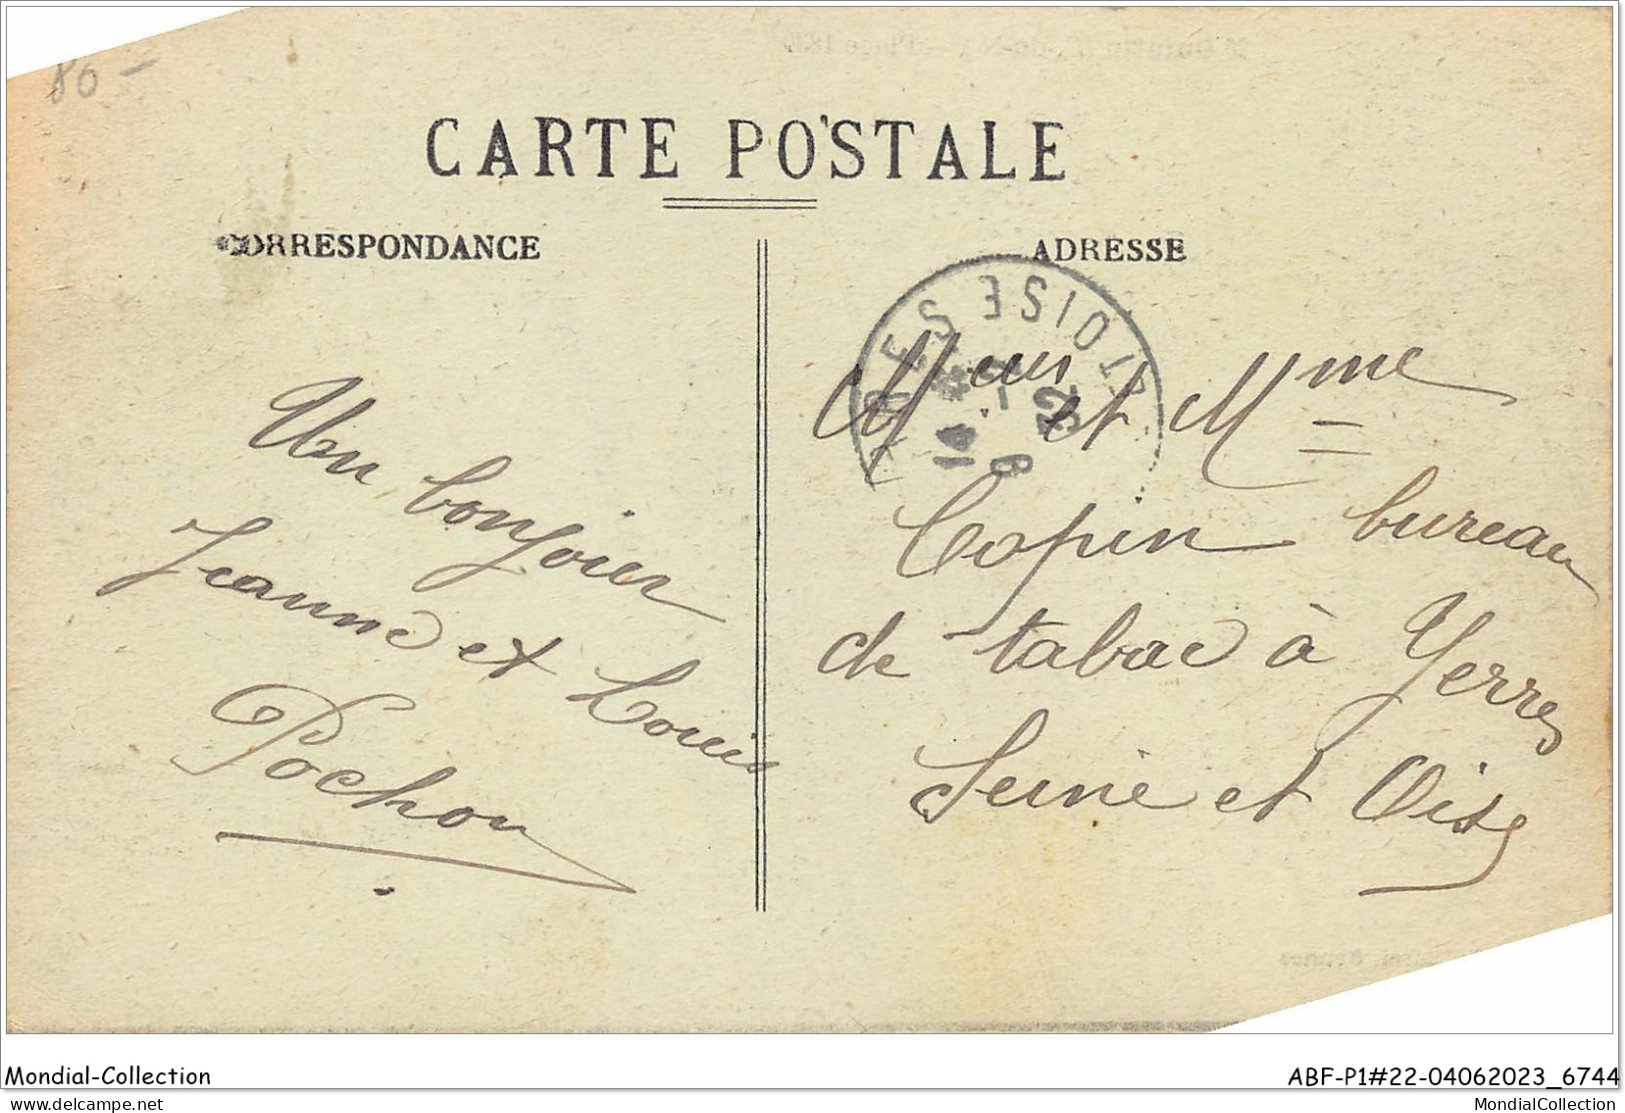 80 -
CARTE POSTALE
CORRESPONDANCE
ADRESSE
Un bonjour
Jeanne et Louis
Pochon
Meur et Mme
Copin bureau
de tabac à Yerres
Seine et Oise
YERRES
OISE
14
22
Mondial-Collection
ABF-P1#22-04062023_6744
delcampe.net
MondialCollection